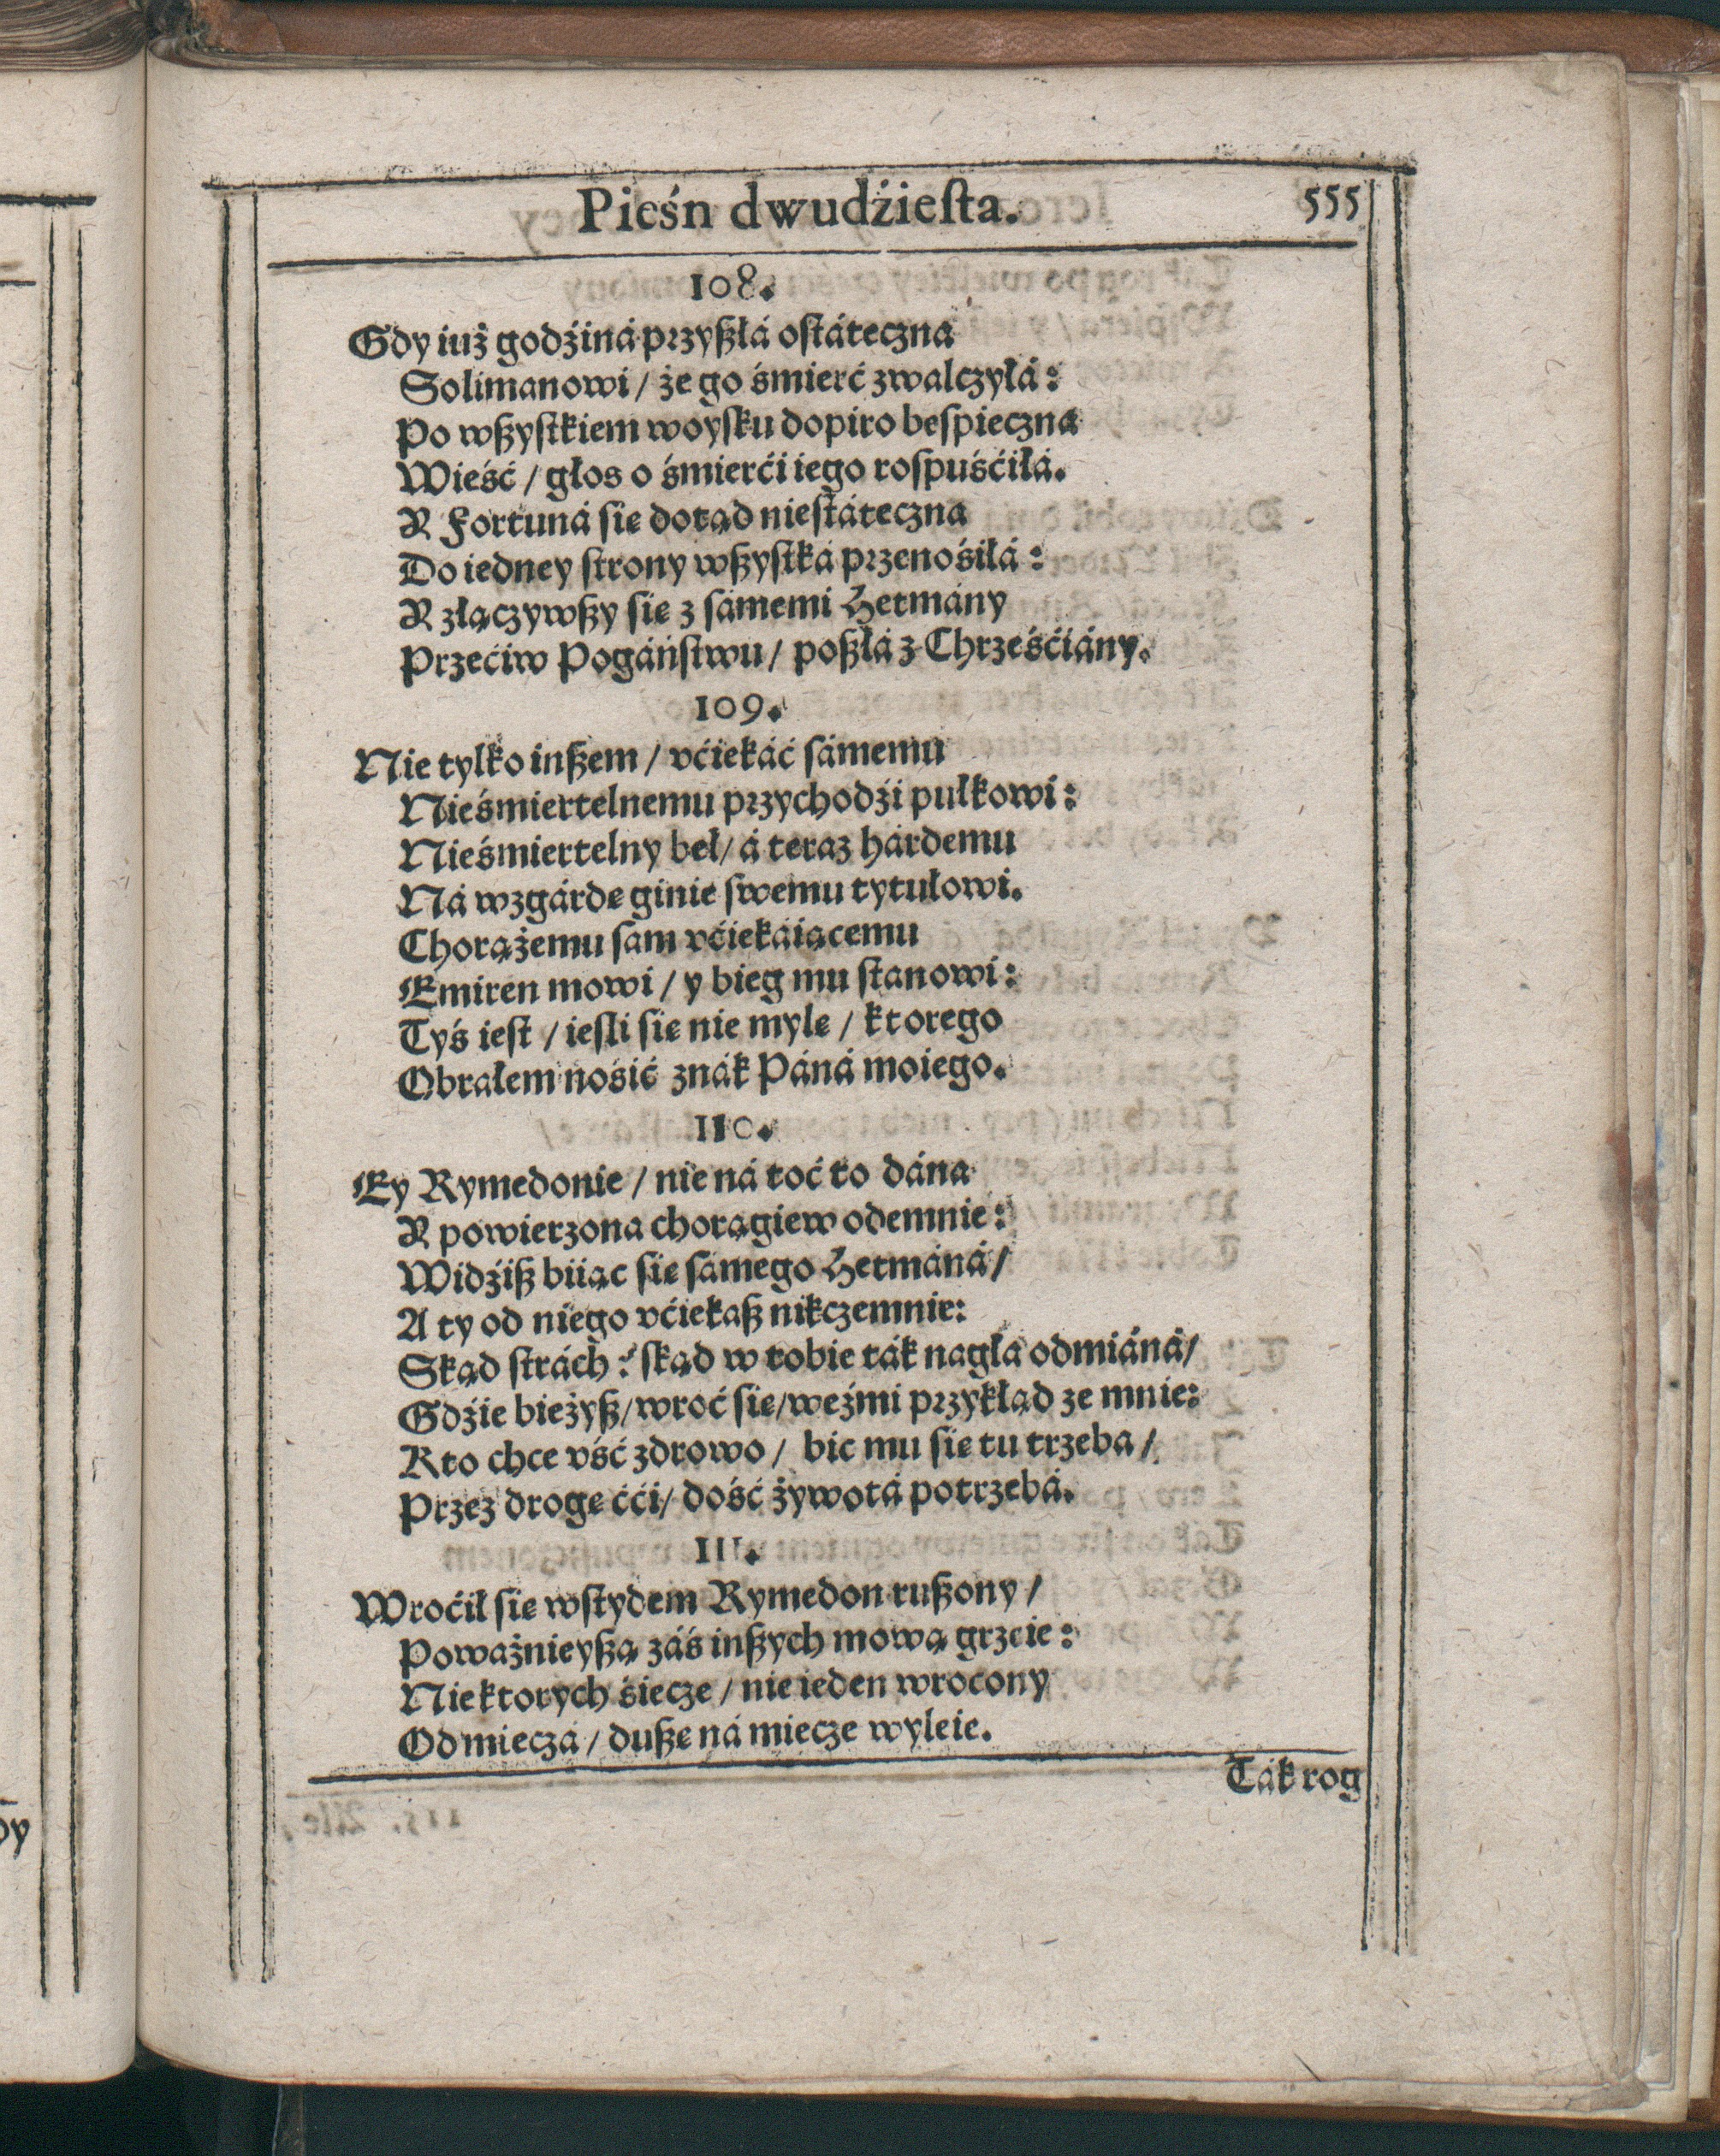 Pieśn dwudźieſta. 555
108.
Gdy iuż godźiná przyßłá oſtáteczna
Solimanowi / że go śmierć zwalczyłá:
Po wßyſtkiem woyſku dopiro beſpieczna
Wieść / głos o śmierći iego roſpuśćiłá.
A Fortuná ſie dotąd nieſtáteczna
Do iedney ſtrony wßyſtká przenośiłá:
A złączywßy ſię z ſámemi Hetmány
Przećiw Pogáńſtwu / poßłá z Chrześćiány.
109.
Nie tylko inßem / vćiekáć ſámemu
Nieśmiertelnemu przychodźi pułkowi:
Nieśmiertelny beł / á teraz hárdemu
Ná wzgárdę ginie ſwemu tytułowi.
Chorążemu ſam vćiekáiącemu
Emiren mowi / y bieg mu ſtanowi:
Tyś ieſt / ieſli ſię nie mylę / ktorego
Obrałem nośić znák Páná moiego.
110.
Ey Rymedonie / nie ná toć to dána
A powierzona chorągiew odemnie:
Widźiß biiąc ſię ſámego Hetmáná /
A ty od niego vćiekaß nikczemnie:
Skąd ſtrách? ſkąd w tobie ták nagła odmiáná /
Gdźie bieżyß / wroć ſię / weźmi przykłąd ze mnie:
Kto chce vść zdrowo / bic mu ſię tu trzeba /
Przez drogę ćći / dość żywotá potrzebá.
111.
Wroćił ſię wſtydem Rymedon rußony /
Poważnieyßą záś inßych mową grzeie:
Niektorych śiecze / nie ieden wrocony
Od mieczá / dußę ná miecze wyleie.
Ták rog
dy